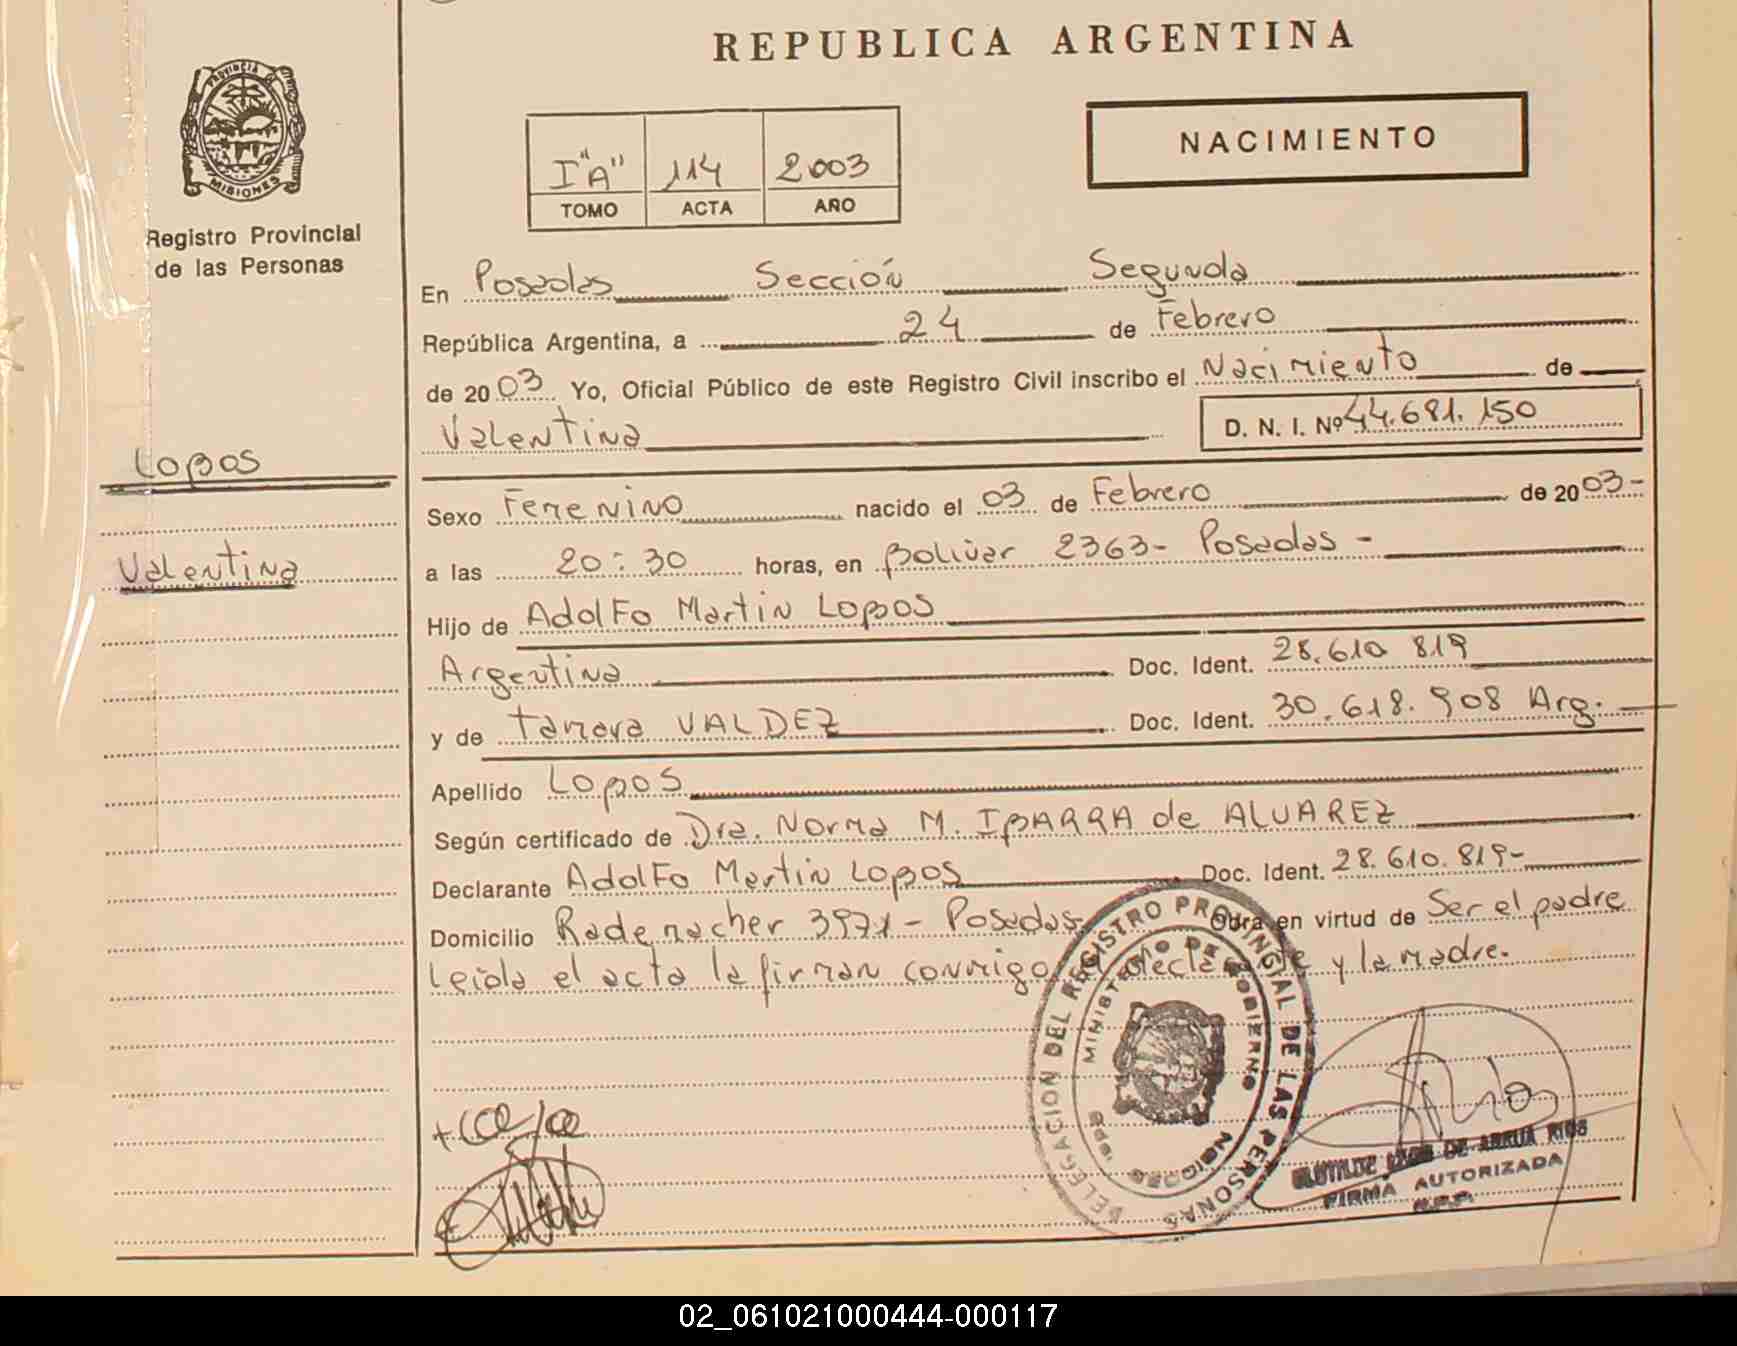 REPUBLICA ARGENTINA
PROVINCIA DE
MISIONES
Registro Provincial
de las Personas
I "A" 114 2003
TOMO ACTA AÑO
NACIMIENTO
Lopos
Valentina
En Posadas Sección Segunda
República Argentina, a 24 de Febrero
de 2003 Yo, Oficial Público de este Registro Civil inscribo el Nacimiento de
Valentina D. N. I. Nº 44.681.150
Sexo Femenino nacido el 03 de Febrero de 2003-
a las 20:30 horas, en Bolivar 2363- Posadas -
Hijo de Adolfo Martin Lopos
Argentina Doc. Ident. 28.610 819
y de Tamara VALDEZ Doc. Ident. 30.618.908 Arg.
Apellido Lopos
Según certificado de Dra. Norma M. IBARRA de ALVAREZ
Declarante Adolfo Martin Lopos Doc. Ident. 28.610.819-
Domicilio Rademacher 3971- Posadas- Obra en virtud de Ser el padre
Leida el acta la firman conmigo el declarante y la madre.
DELEGACION DEL REGISTRO PROVINCIAL DE LAS PERSONAS
MINISTERIO DE GOBIERNO
MISIONES
DE ARRUA RIOS
FIRMA AUTORIZADA
R.P.P.
02_061021000444-000117